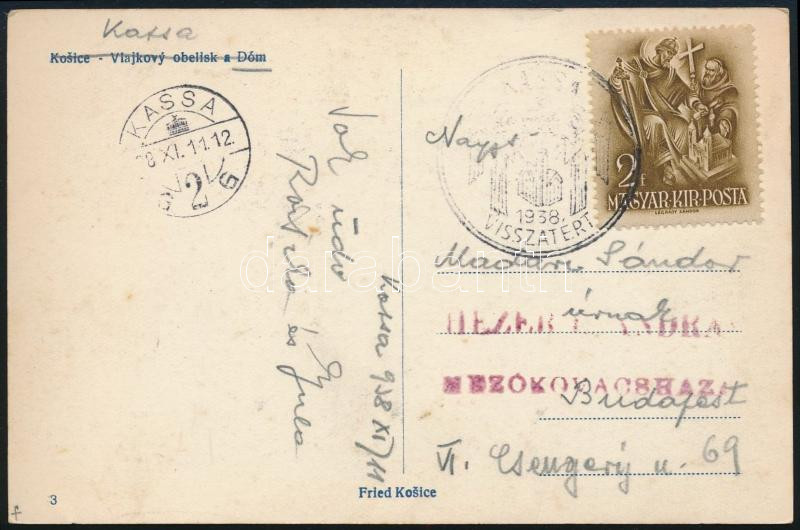 Kassa
Košice - Vlajkový obelisk a Dóm
KASSA
38 XI. 11. 12
2
KASSA
1938.
VISSZATÉRT
2f
MAGYAR·KIR·POSTA
LÉGRÁDY SÁNDOR
Nagys
Madár Sándor
úrnak
MEZŐKOVÁCSHÁZA
Budapest
VI. Csengery u. 69
Sok üdv
és Gyula
Kassa 938 XI/11
darabanth
Fried Košice
3